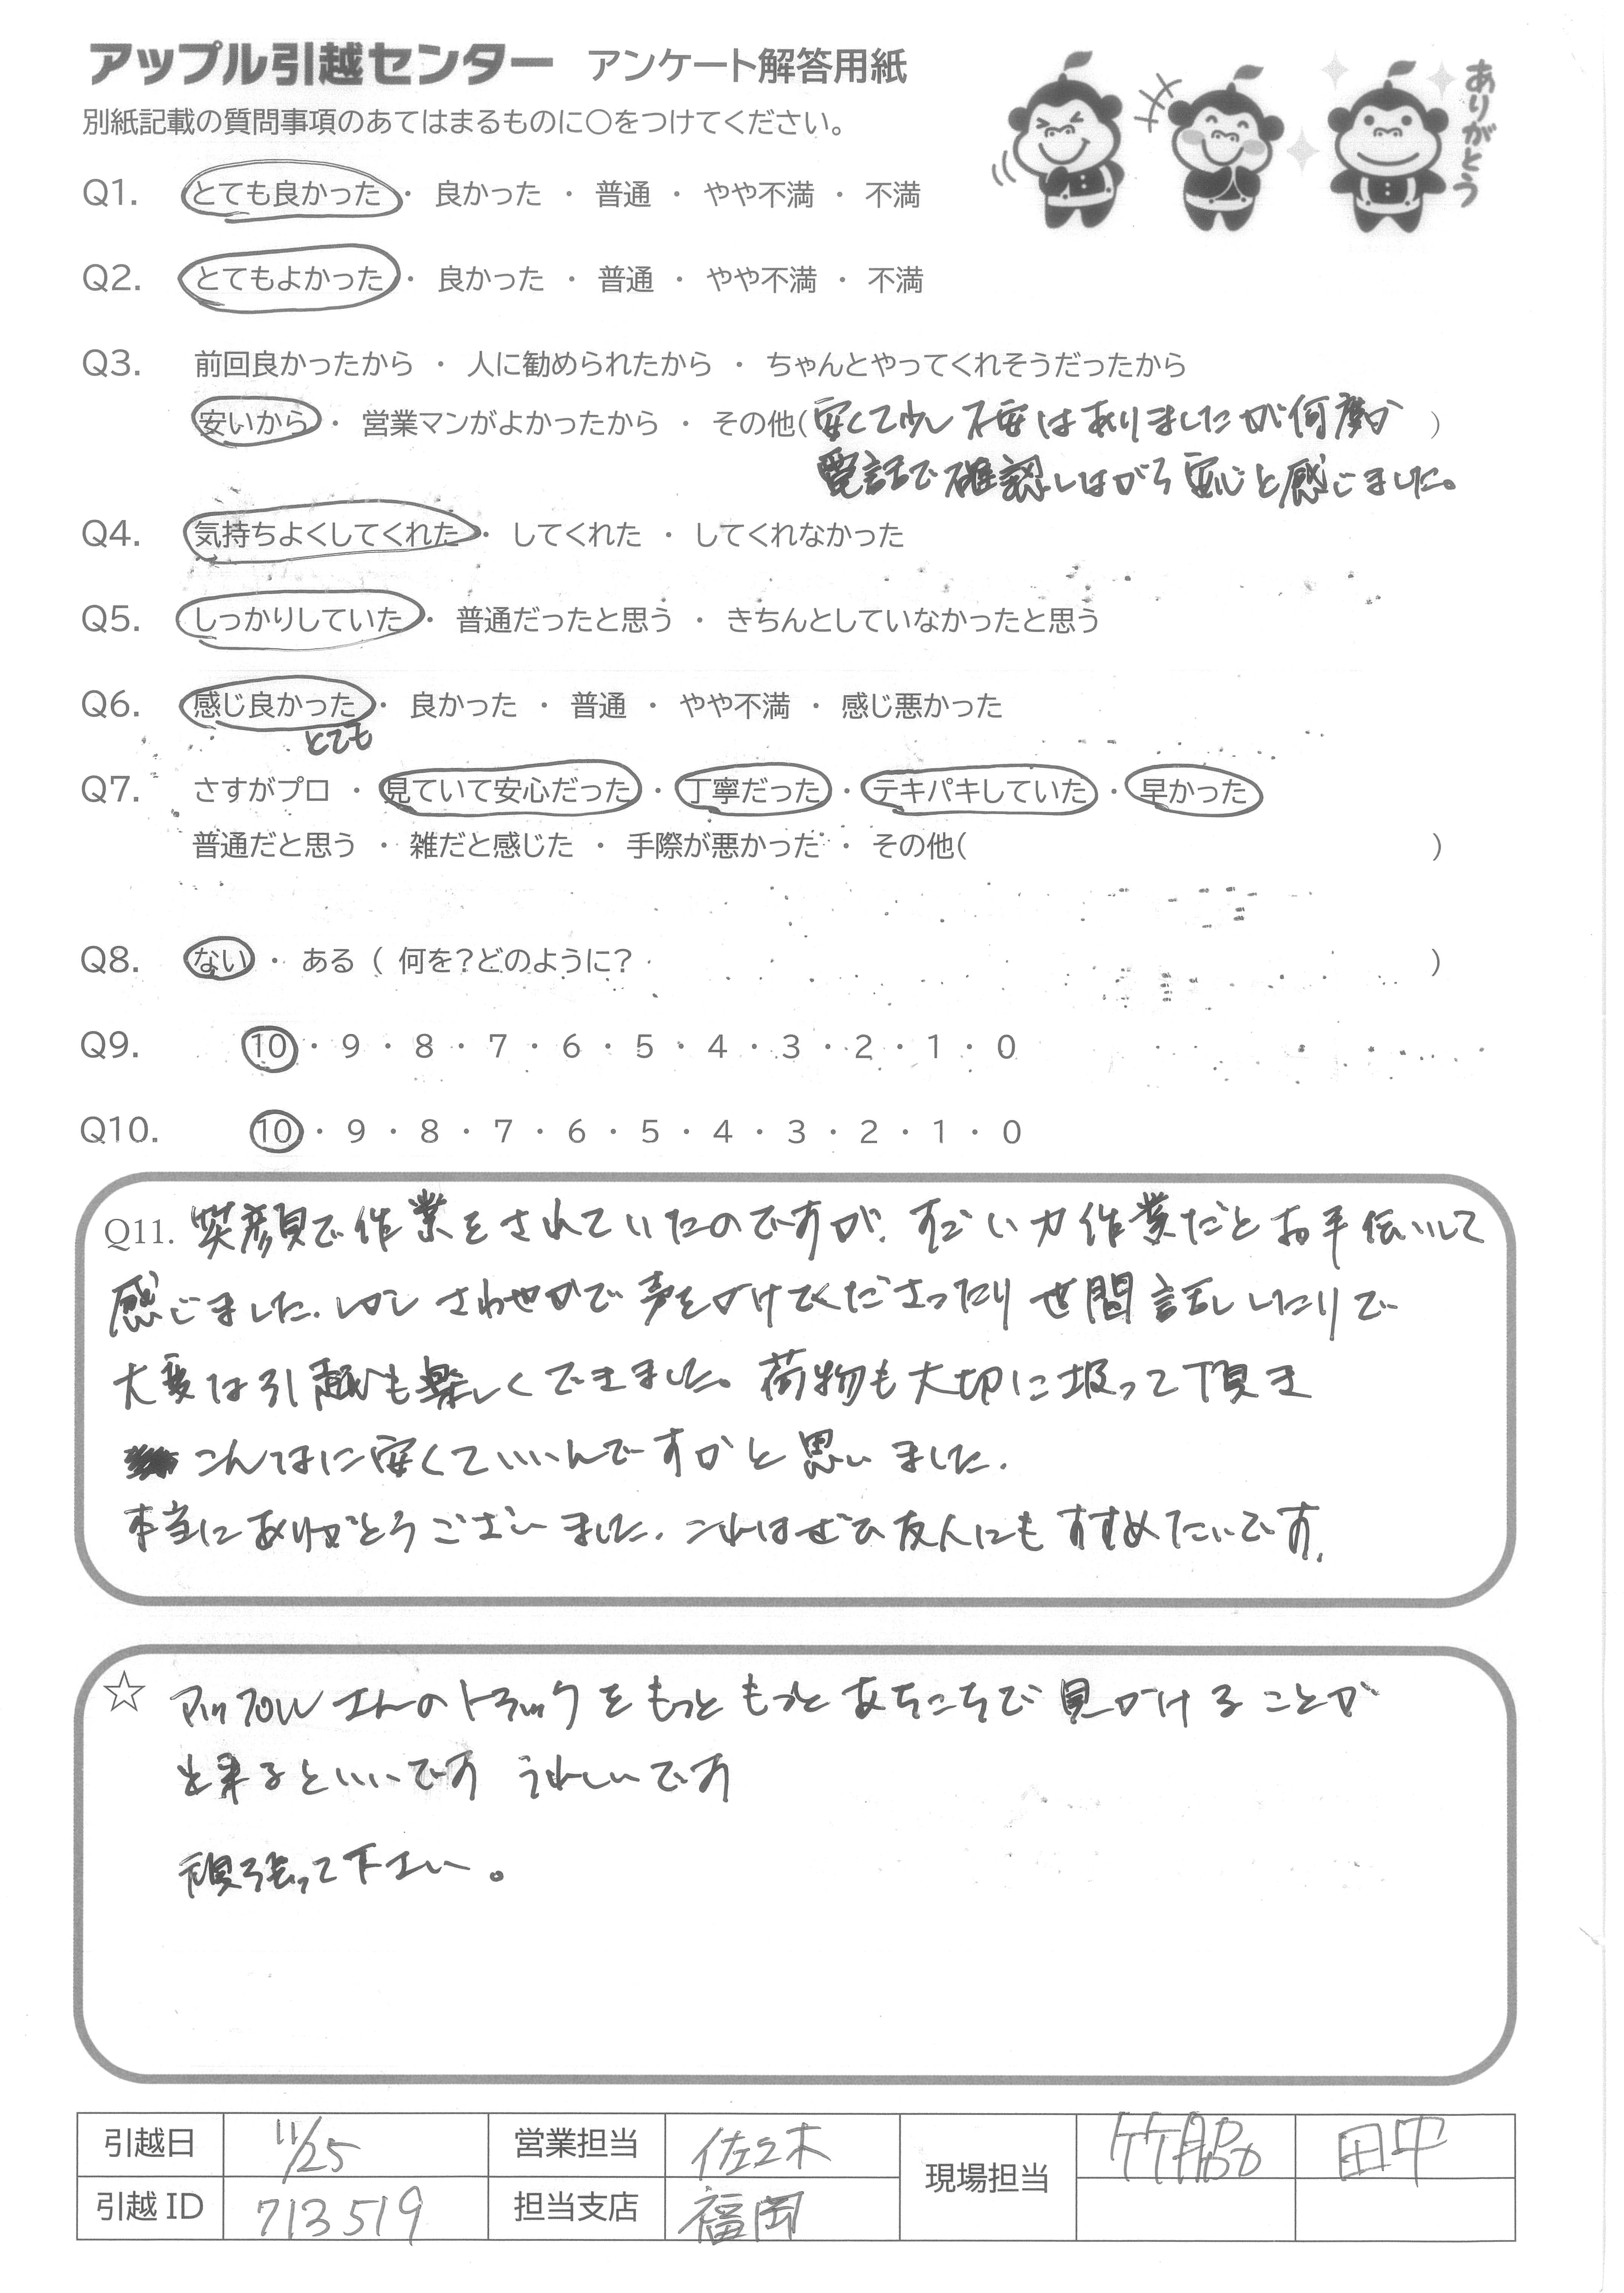 アップル引越センター アンケート解答用紙
ありがとう
別紙記載の質問事項のあてはまるものに〇をつけてください。
Q1. とても良かった ・ 良かった ・ 普通 ・ やや不満 ・ 不満
Q2. とてもよかった ・ 良かった ・ 普通 ・ やや不満 ・ 不満
Q3. 前回良かったから ・ 人に勧められたから ・ ちゃんとやってくれそうだったから
安いから ・ 営業マンがよかったから ・ その他(安くて少し不安はありましたが何度か )
電話で確認しながら安心と感じました。
Q4. 気持ちよくしてくれた ・ してくれた ・ してくれなかった
Q5. しっかりしていた ・ 普通だったと思う ・ きちんとしていなかったと思う
Q6. 感じ良かった ・ 良かった ・ 普通 ・ やや不満 ・ 感じ悪かった
とても
Q7. さすがプロ ・ 見ていて安心だった ・ 丁寧だった ・ テキパキしていた ・ 早かった
普通だと思う ・ 雑だと感じた ・ 手際が悪かった ・ その他( )
Q8. ない ・ ある ( 何を?どのように? )
Q9. 10 ・ 9 ・ 8 ・ 7 ・ 6 ・ 5 ・ 4 ・ 3 ・ 2 ・ 1 ・ 0
Q10. 10 ・ 9 ・ 8 ・ 7 ・ 6 ・ 5 ・ 4 ・ 3 ・ 2 ・ 1 ・ 0
Q11. 笑顔で作業をされていたのですが、すごい力作業だとお手伝いして
感じました。しかしさわやかで声をかけてくださったり世間話ししたりで
大変な引越も楽しくできました。荷物も大切に扱って頂き
こんなに安くていいんですかと思いました。
本当にありがとうございました。これはぜひ友人にもすすめたいです。
☆ アップルさんのトラックをもっともっとあちこちで見かけることが
出来るといいです うれしいです
頑張って下さい。
引越日 11/25 営業担当 佐々木 現場担当 竹脇 田中
引越 ID 713519 担当支店 福岡